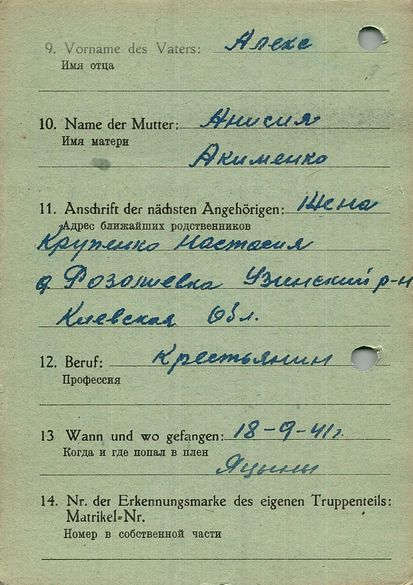 9. Vorname des Vaters: Алекс
Имя отца
10. Name der Mutter: Анисия
Имя матери
Акименко
11. Anschrift der nächsten Angehörigen: Жена
Адрес ближайших родственников
Крупенко Настасия
д. Розалиевка Узинский р-н
Киевская Обл.
12. Beruf: Крестьянин
Профессия
13 Wann und wo gefangen: 18-9-41г.
Когда и где попал в плен
Яцыны
14. Nr. der Erkennungsmarke des eigenen Truppenteils:
Matrikel-Nr.
Номер в собственной части